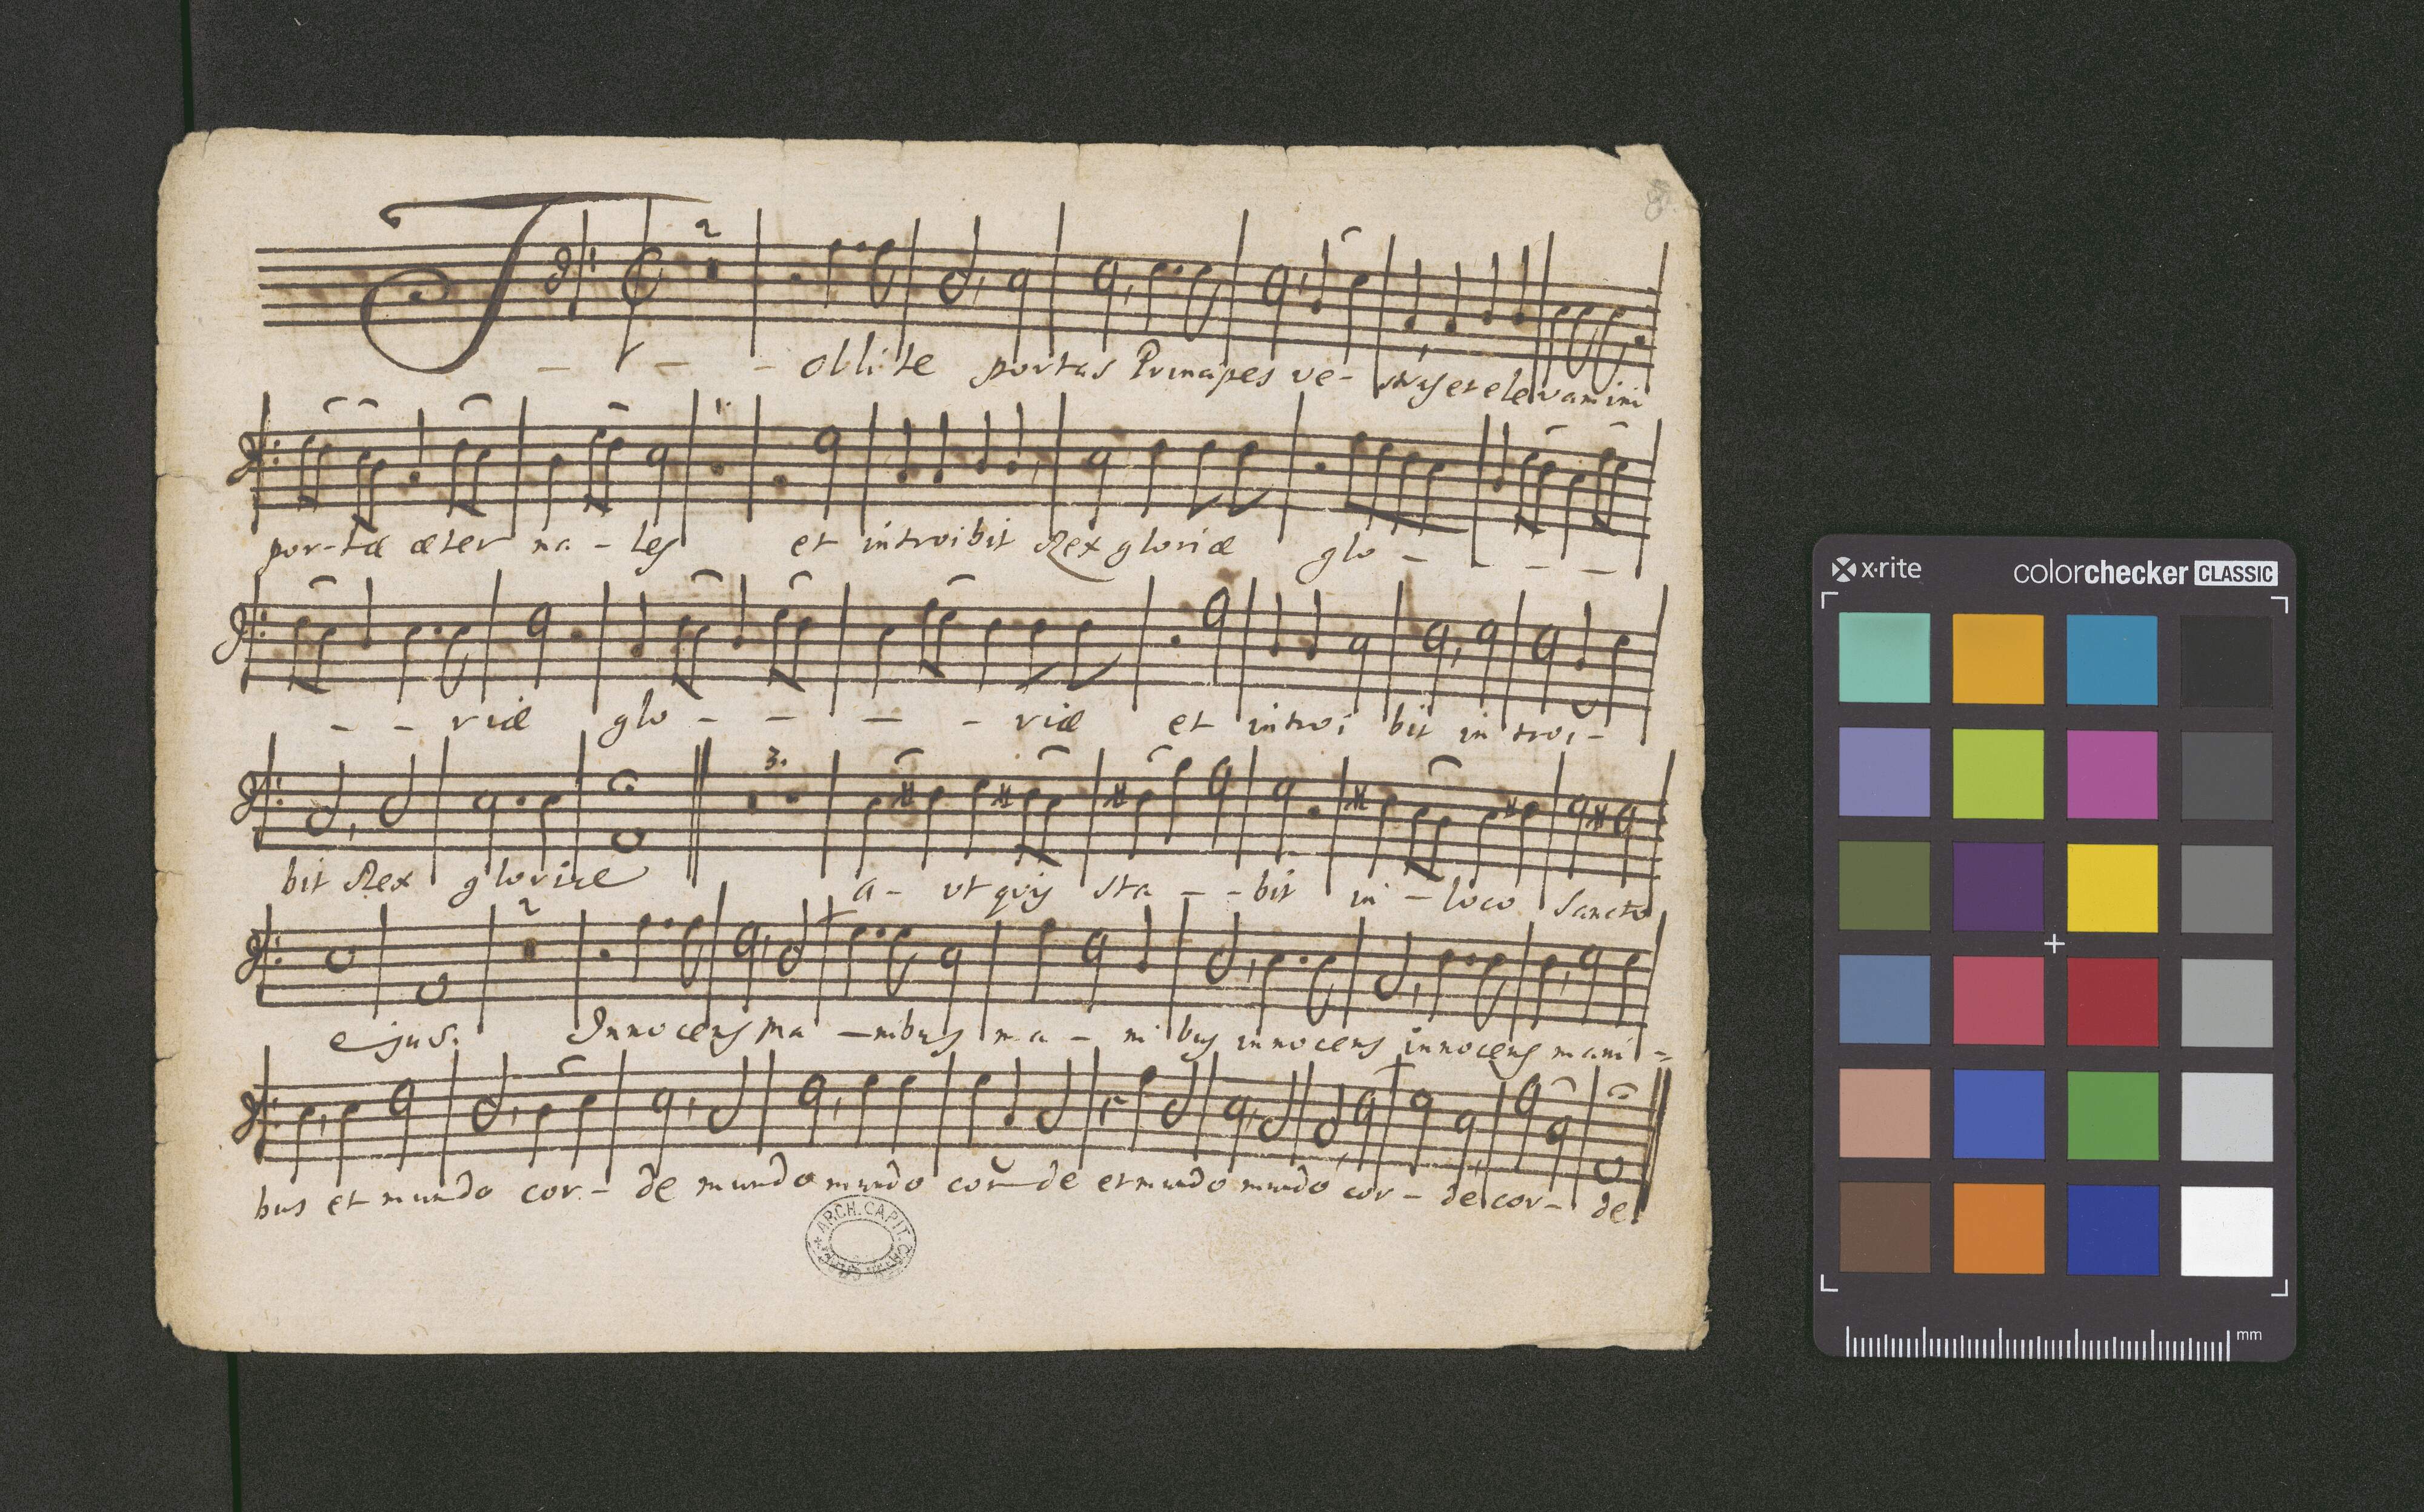 8
2
T - - - ollite portas Principes ve- strys et elevamini
1.
por-tæ æter na - les et introibit Rex gloriæ glo - - - -
- - riæ glo - - - - riæ et introi bit in troi-
3.
bit Rex gloriae a- ut quis sta - - bit in - loco Sancto
2
ejus. Innocens Ma -nibus ma - ni bus innocens innocens mani -
bus et mundo cor - de mundo mundo cor de et mundo mundo cor - de cor - de
ARCH. CAPIT.
x·rite colorchecker CLASSIC
mm